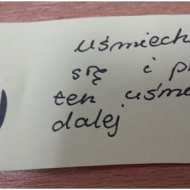 uśmiech
się i p
ten uśmie
dalej